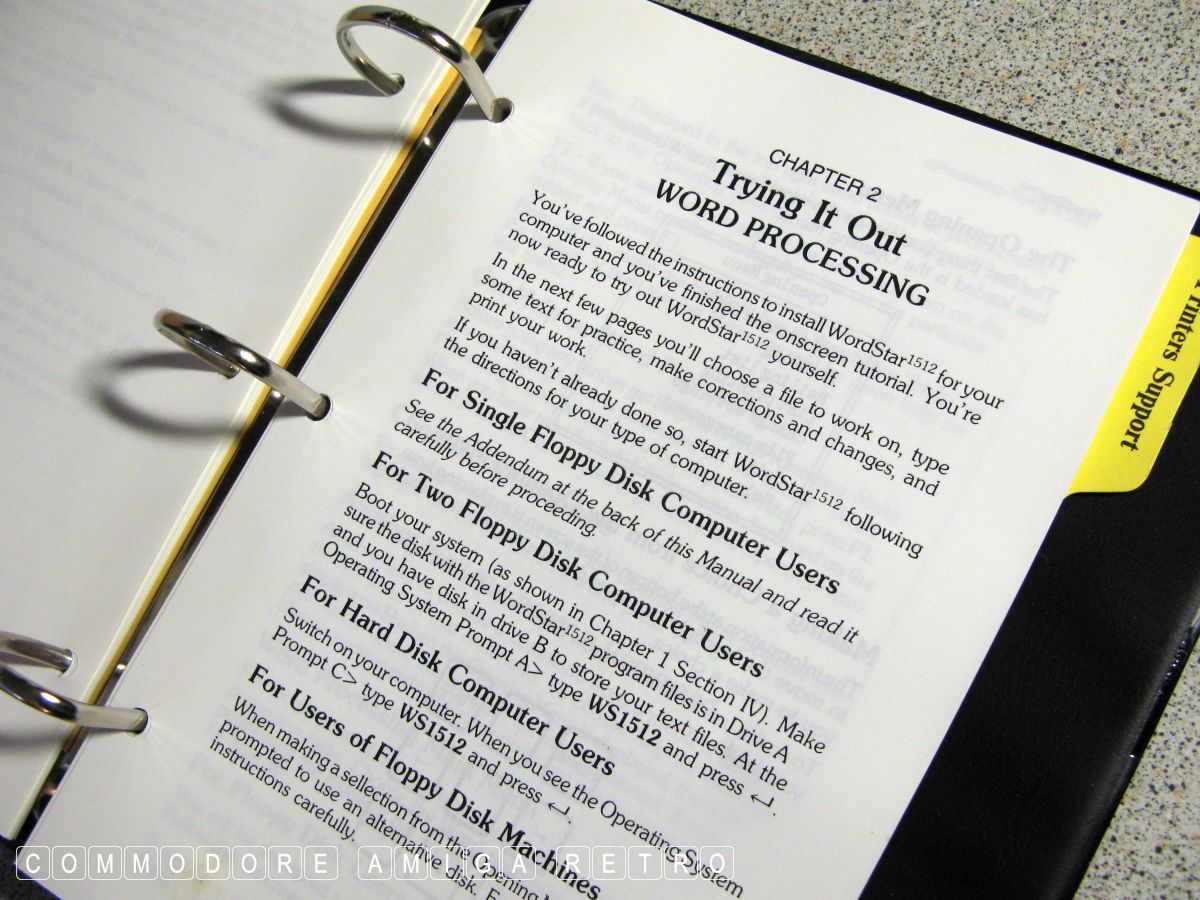 CHAPTER 2
Trying It Out
WORD PROCESSING
You've followed the instructions to install WordStar1512 for your
computer and you've finished the onscreen tutorial. You're
now ready to try out WordStar1512 yourself.
In the next few pages you'll choose a file to work on, type
some text for practice, make corrections and changes, and
print your work.
If you haven't already done so, start WordStar1512 following
the directions for your type of computer.
For Single Floppy Disk Computer Users
See the Addendum at the back of this Manual and read it
carefully before proceeding.
For Two Floppy Disk Computer Users
Boot your system (as shown in Chapter 1 Section IV). Make
sure the disk with the WordStar1512 program files is in Drive A
and you have disk in drive B to store your text files. At the
Operating System Prompt A> type WS1512 and press ↵.
For Hard Disk Computer Users
Switch on your computer. When you see the Operating System
Prompt C> type WS1512 and press ↵.
For Users of Floppy Disk Machines
When making a sellection from the Opening
prompted to use an alternative disk.
instructions carefully.
Printers Support
COMMODORE AMIGA RETRO